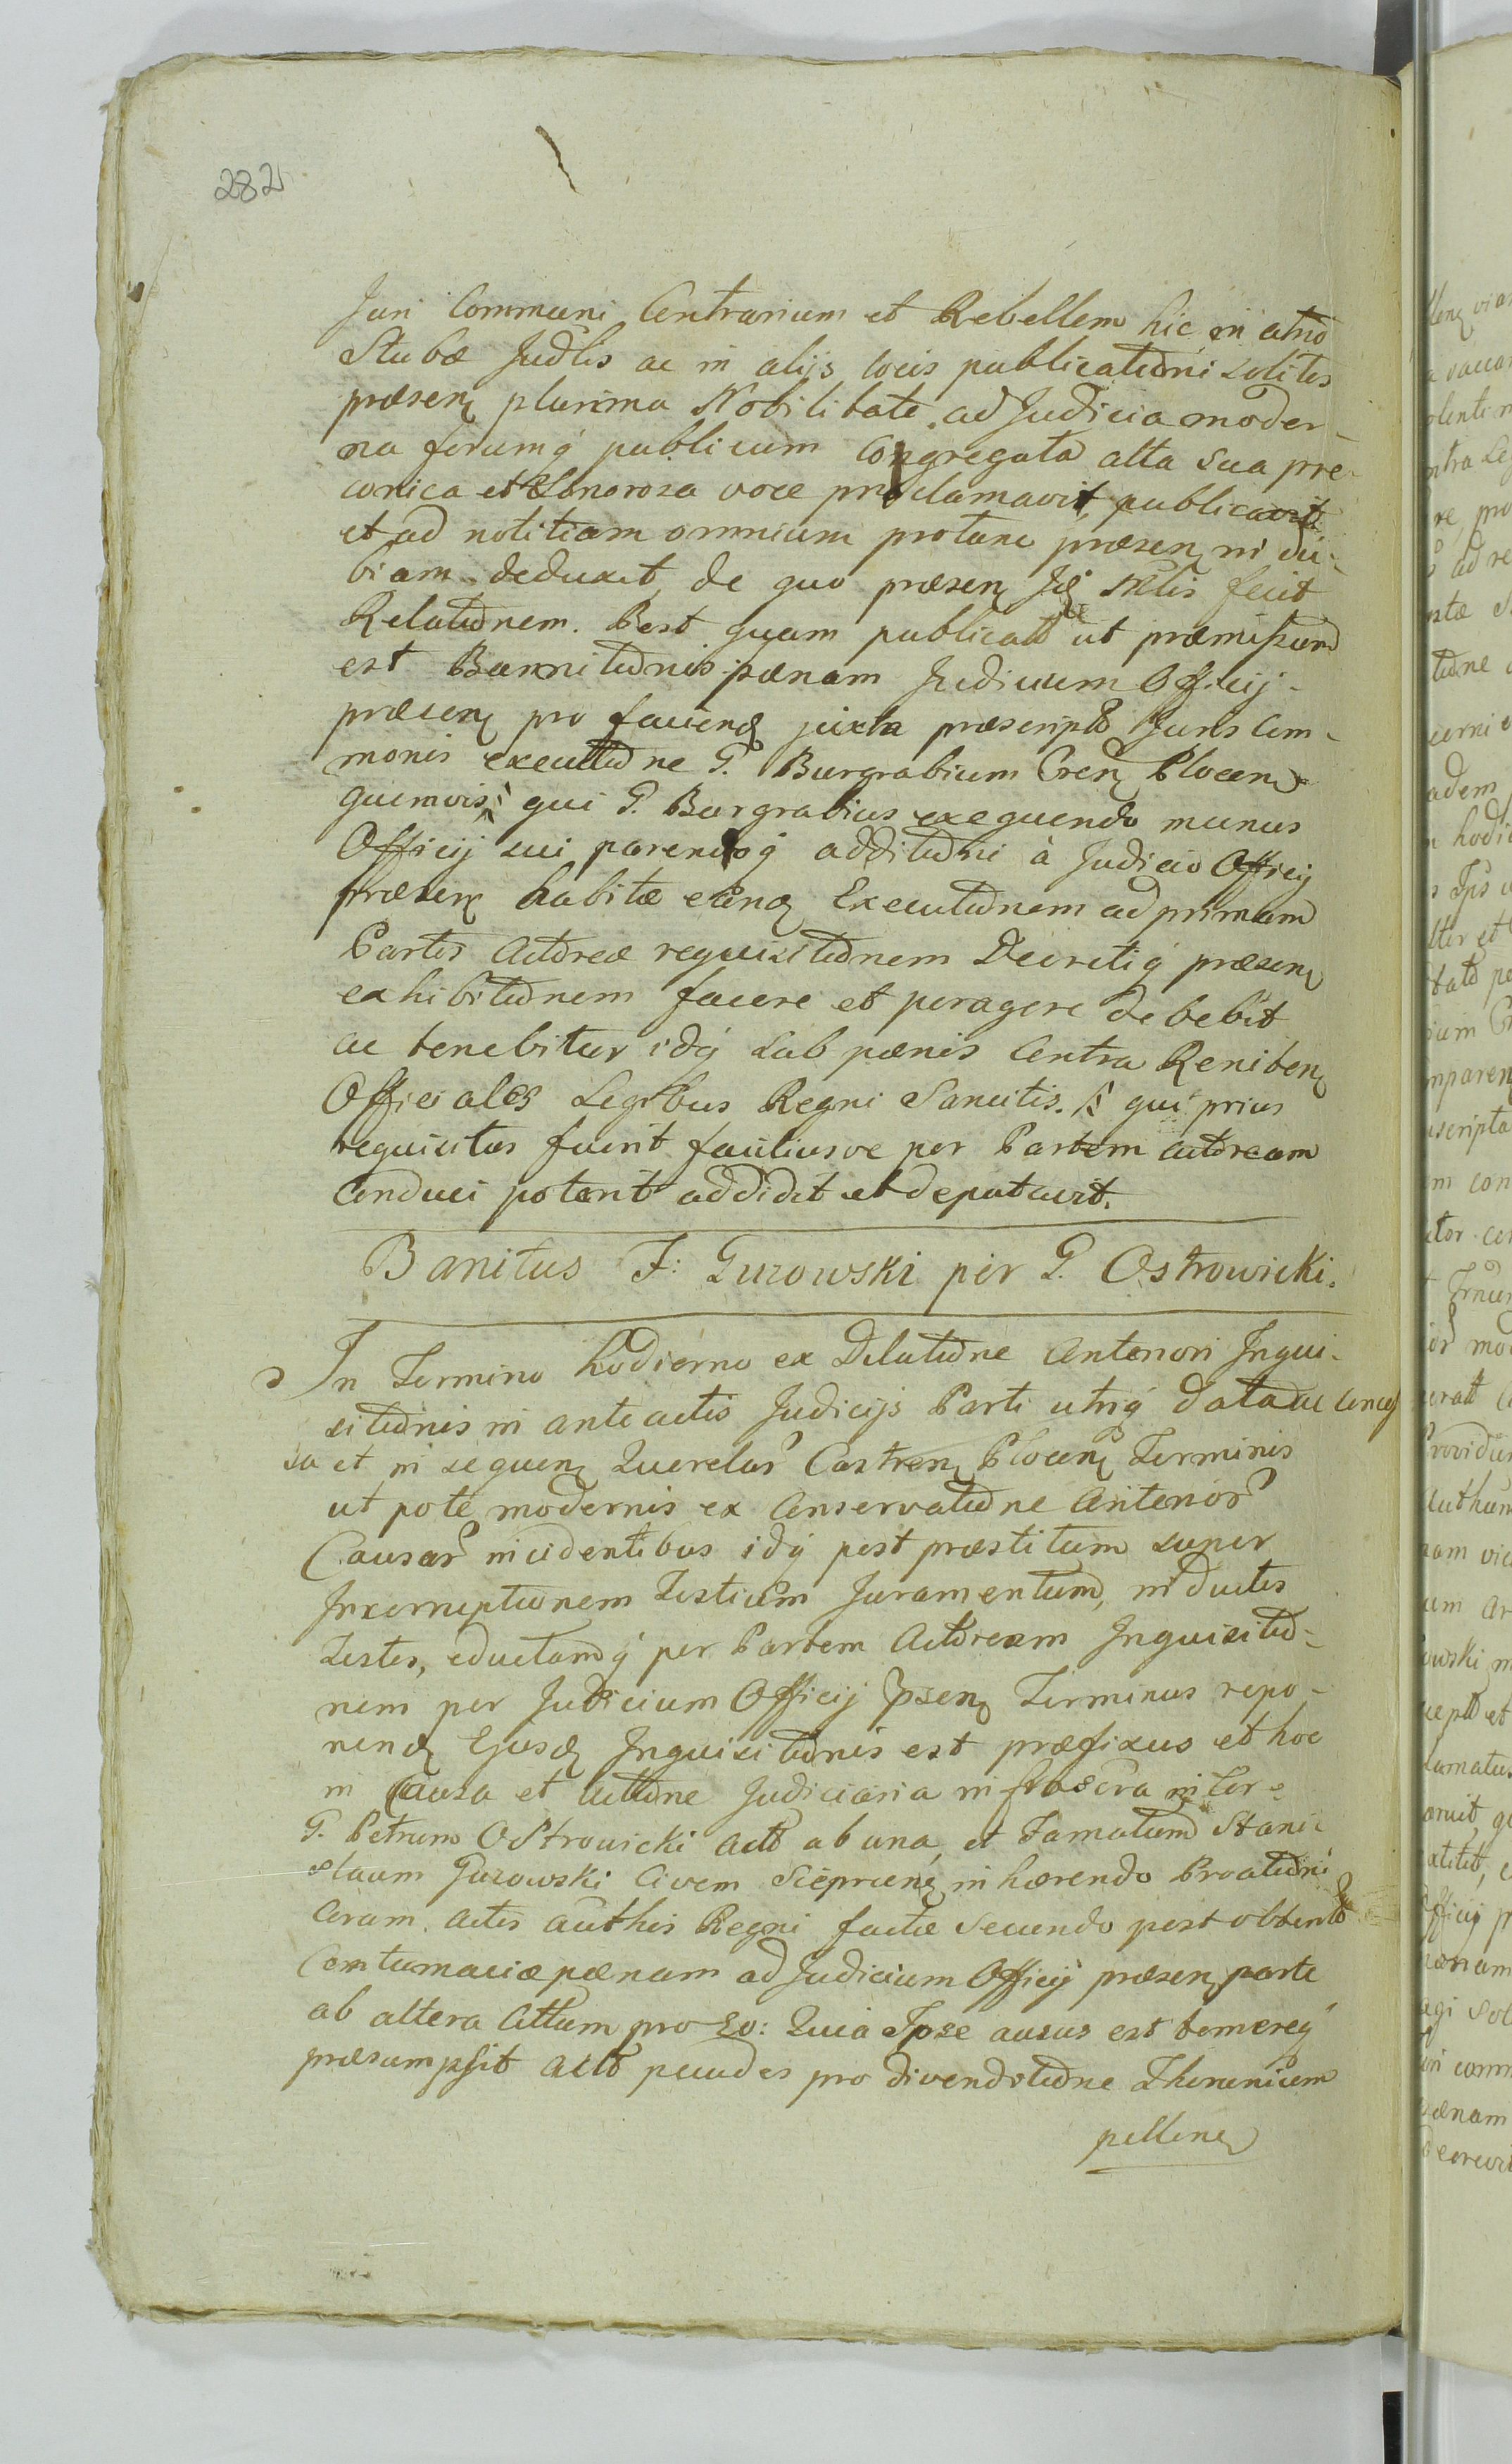 282
Juri Communi Contrarium et Rebellem hic in atrio
Stubæ Judlis ac in alijs locis publicationi solitis
præsenq plurima Nobilitate ad Judicia moder-
na forumq publicum Congregata alta sua pre-
conica et Sonorosa voce proclamavit, publicavit
et ad notitiam omnium protunc præsenq in du-
biam deduxit, de quo præsenq Jdq Mlis fecit
Relationem. Post quam publicatã ut præmissum
est Bannitionis pænam Judicium Officij
præsenq pro faciendq juxta præscriptũ Juris Com-
monis executione G. Burgrabium Crenq Plocenq
quemvis qui G. Burgrabius exequendo munus
Officij sui parendoq additioni à Judicio Officij
præsenq habitæ eandq Executionem ad primam
Partis Actoreæ requisitionem Decretiq præsenq
exhibitionem facere et peragere debebit
ac tenebitur idq sub pænis Contra Renitenq
Officiales Legibus Regni Sancitis. qui prius
requisitus fuerit faciliusve per Partem actoream
Conduci poterit addidit et deputavit.
Banitus F: Gurowski per G. Ostrowicki.
In Termino hodierno ex Dilatione Anteriori Inqui-
sitionis in anteactis Judicijs Parti utriq data ac Conces
sa et in sequenq Querelar Castrenq Plocenq Terminis
ut pote modernis ex Conservatione Anterior
Causar incidentibus idq post præstitum super
Inxerruptionem Testium Juramentum, inductis
Testes, eductamq per Partem Actoream Inquisitio-
nem per Judicium Officij Psenq Terminus repo-
nendq Ejusdq Inquisitionis est præfixus et hoc
in Causa et actione Judiciaria infrascra inter
G. Petrum Ostrowicki Actõ ab una, et Famatum Stani-
slaum Gurowski Civem Sieprcenq inhærendo Proationi
Coram Actis Authis Regni factæ secundo post obtentã
Contumaciæ pænam ad Judicium Officij præsenq parte
ab altera Cittum pro Eo: Quia Ipse ausus est temereq
præsumpsit Actõ pecudes pro divenditione Thorunium
pellenq